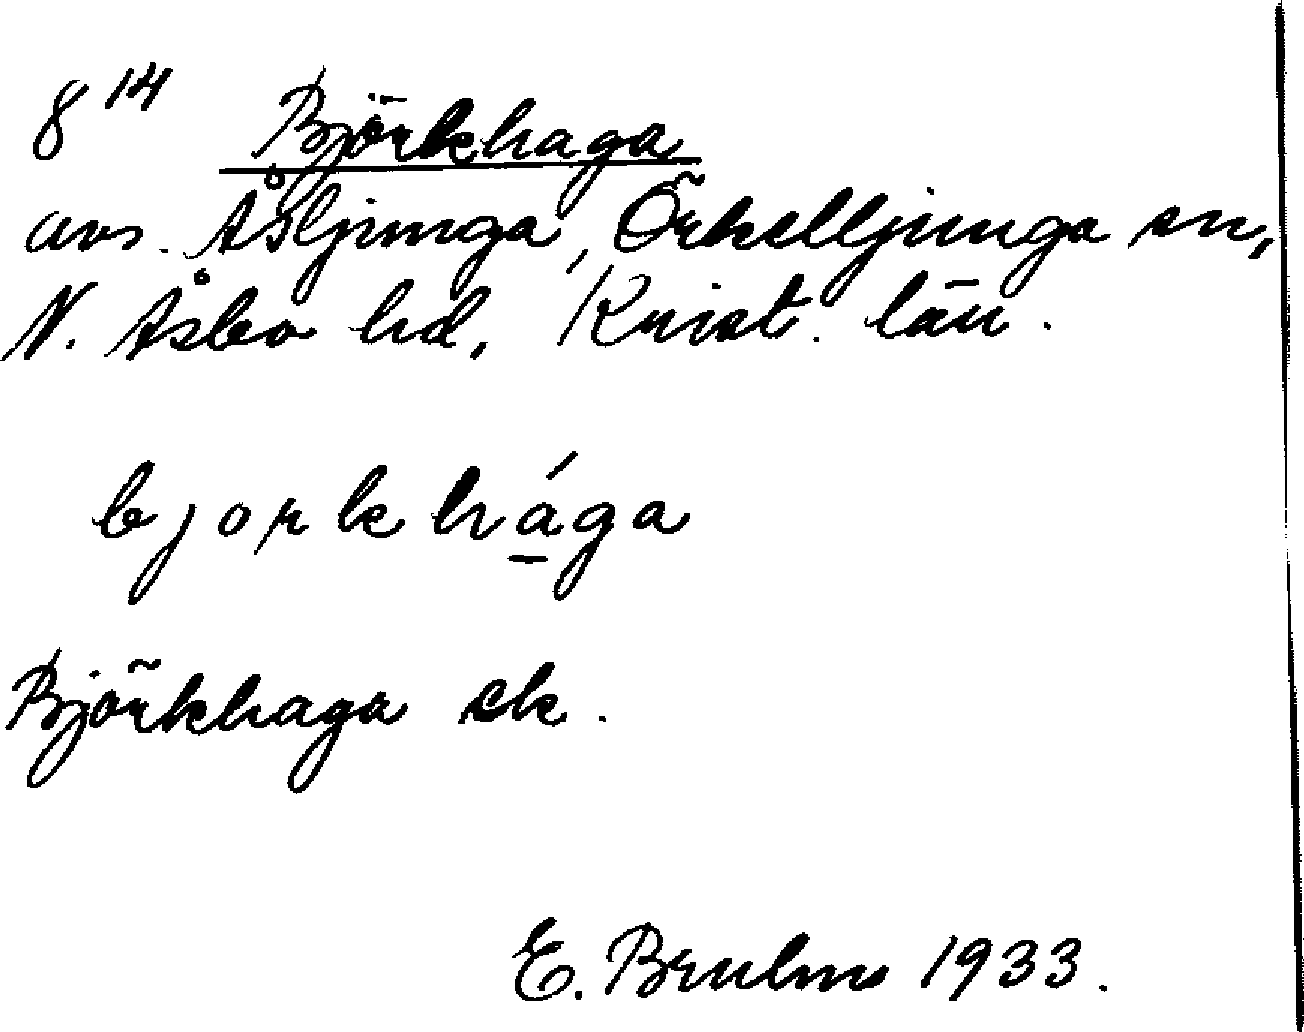 8¹⁴ Björkhaga
avs. Åsljunga, Örkelljunga sn,
N. Åsbo hd, Krist. län.
bjorkhága
Björkhaga ek.
E. Bruhn 1933.